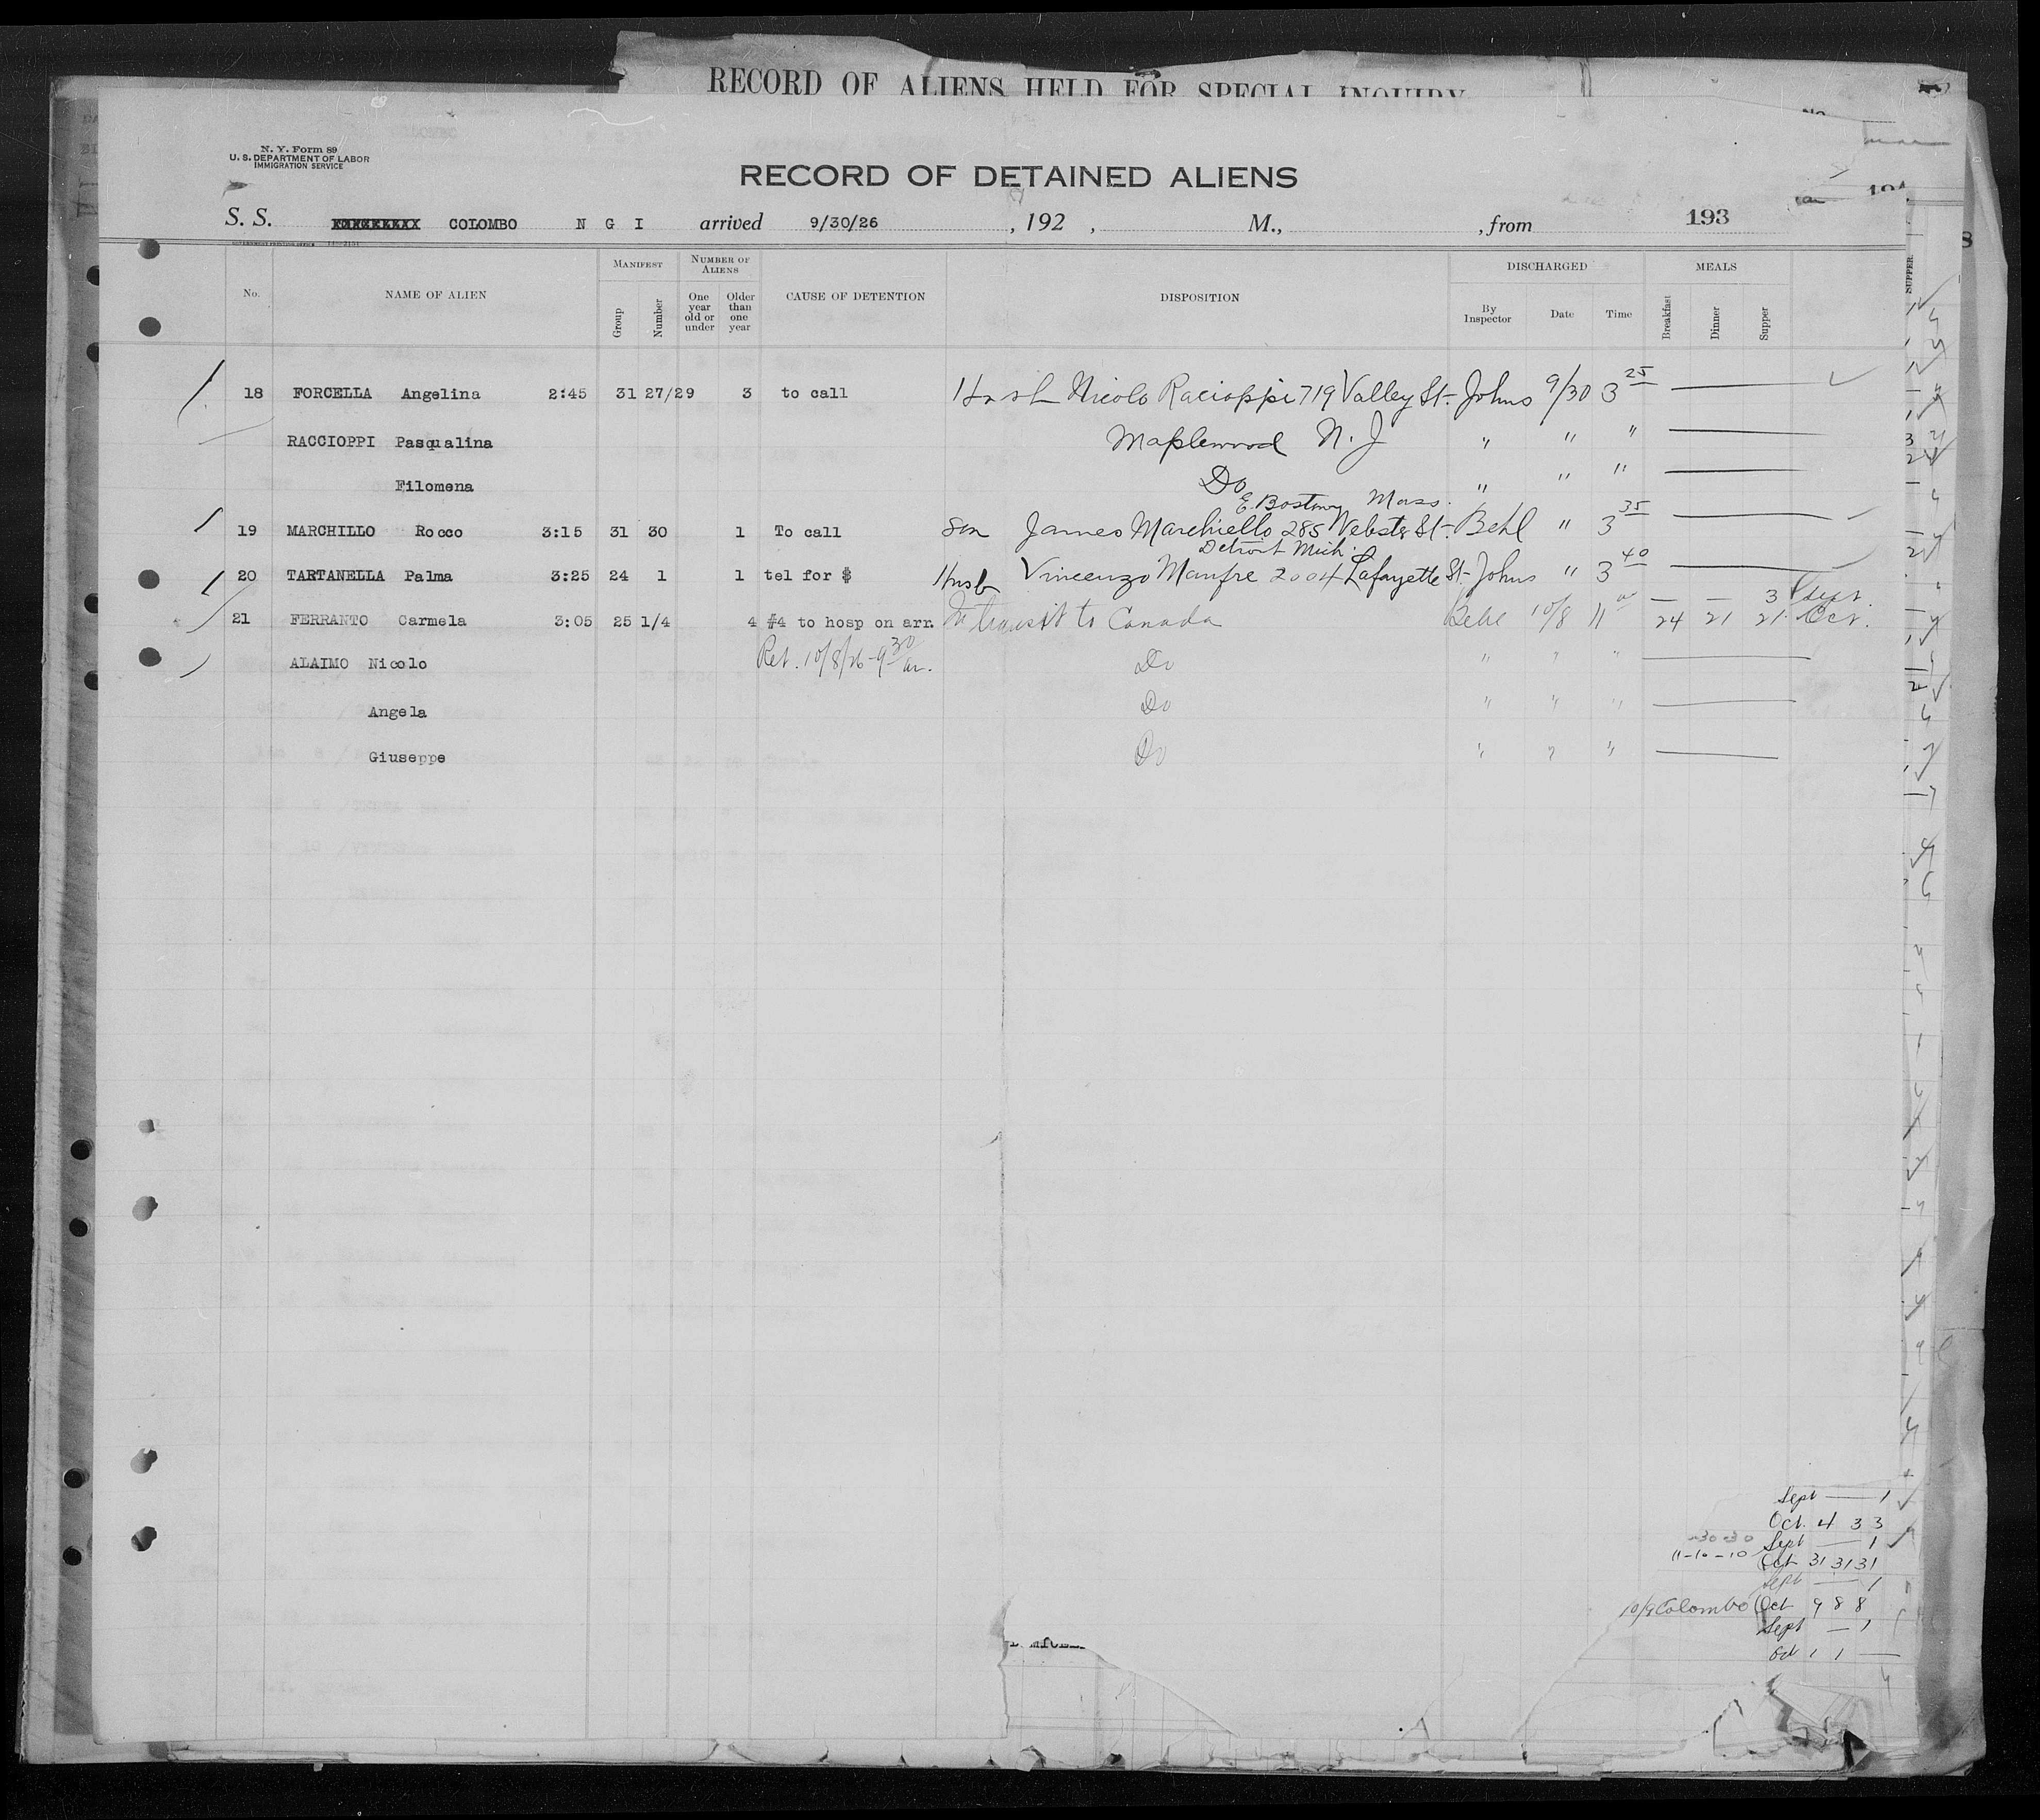 RECORD OF ALIENS HELD FOR SPECIAL INQUIRY
N. Y. Form 89
U. S. DEPARTMENT OF LABOR
IMMIGRATION SERVICE
RECORD OF DETAINED ALIENS
S. S. COLOMBO N G I arrived 9/30/26, 192 , M., , from 193
No. NAME OF ALIEN MANIFEST Group Number NUMBER OF ALIENS One year old or under Older than one year CAUSE OF DETENTION DISPOSITION DISCHARGED By Inspector Date Time MEALS Breakfast Dinner Supper
18 FORCELLA Angelina 2:45 31 27/29 3 to call Husb Nicolo Racioppi 719 Valley St. Johns 9/30 3 25
RACCIOPPI Pasqualina Maplewood N. J " " "
Filomena Do " " "
E. Boston, Mass.
19 MARCHILLO Rocco 3:15 31 30 1 To call Son James Marchiello 285 Webster St. Behl " 3 35
Detroit Mich.
20 TARTANELLA Palma 3:25 24 1 1 tel for $ Husb Vincenzo Manfre 2004 Lafayette St. Johns " 3 40
— — 3 Sept.
21 FERRANTO Carmela 3:05 25 1/4 4 #4 to hosp on arr. In transit to Canada Behl 10/8 11 24 21 21 Oct.
ALAIMO Nicolo Ret. 10/8/26 - 9 30 am. Do " " "
Angela Do " " "
Giuseppe Do " " "
Sept — 1
Oct. 4 3 3
Sept — 1
11-10-10 Oct 31 31 31
Sept — 1
10/9 Colombo Oct 9 8 8
Sept — 1
Oct 1 1 —